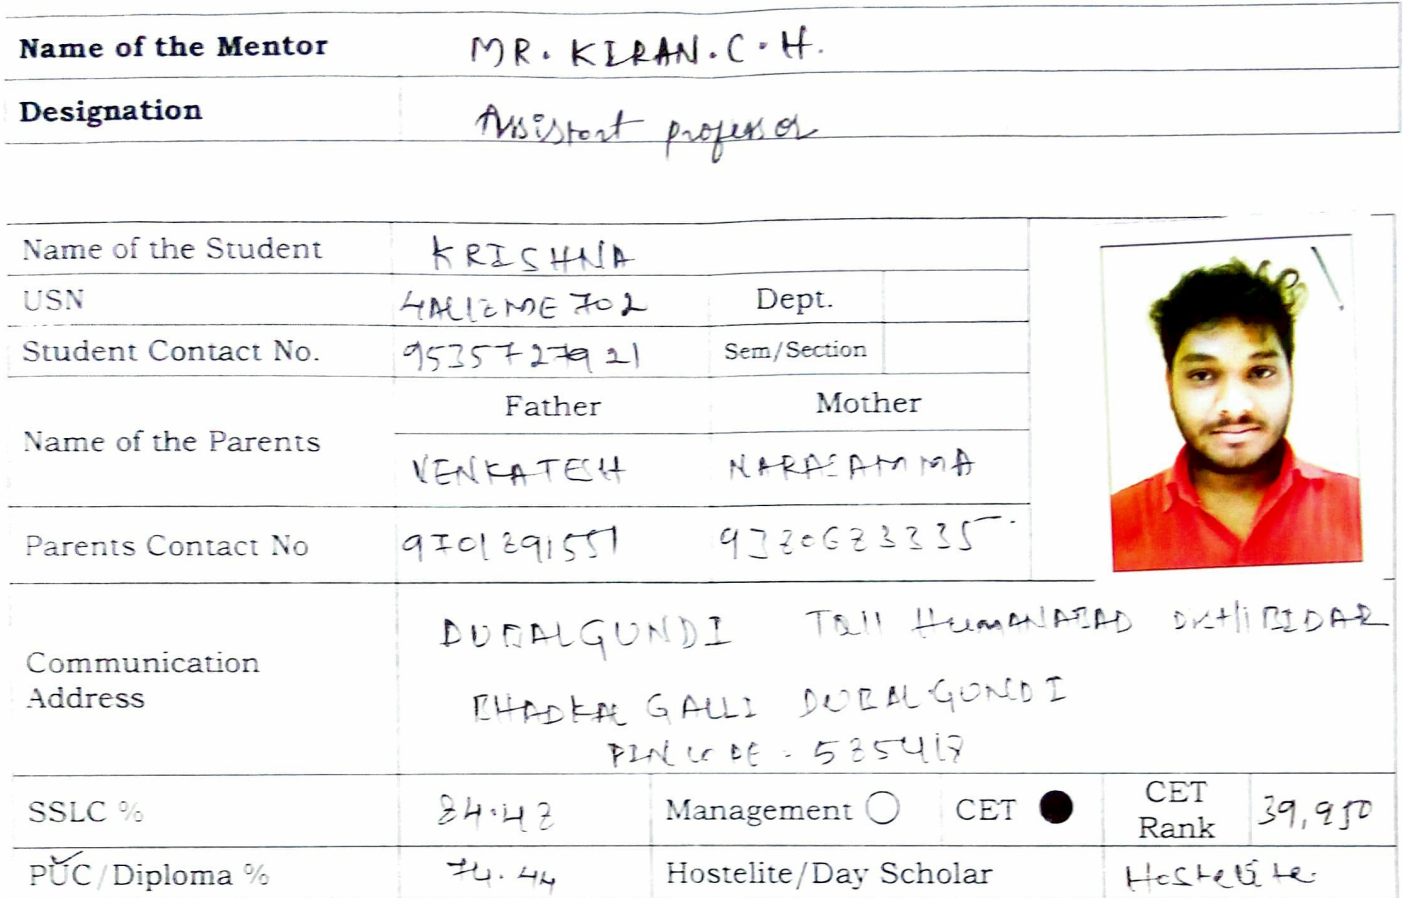 Name of the Mentor MR. KIRAN. C. H.
Designation Assistant professor
Name of the Student KRISHNA
USN 4AL18ME702 Dept.
Student Contact No. 9535727921 Sem/Section
Father Mother
Name of the Parents VENKATESH NARASAMMA
Parents Contact No 9701891551
DUBALGUNDI Tall HumANABAD Dist// BIDAR
Communication
Address
GALLI DUBALGUNDI
PIN CODE - 585418
SSLC % 84.48 Management CET CET Rank 39,950
PUC/Diploma % 74.44 Hostelite/Day Scholar Hostelite